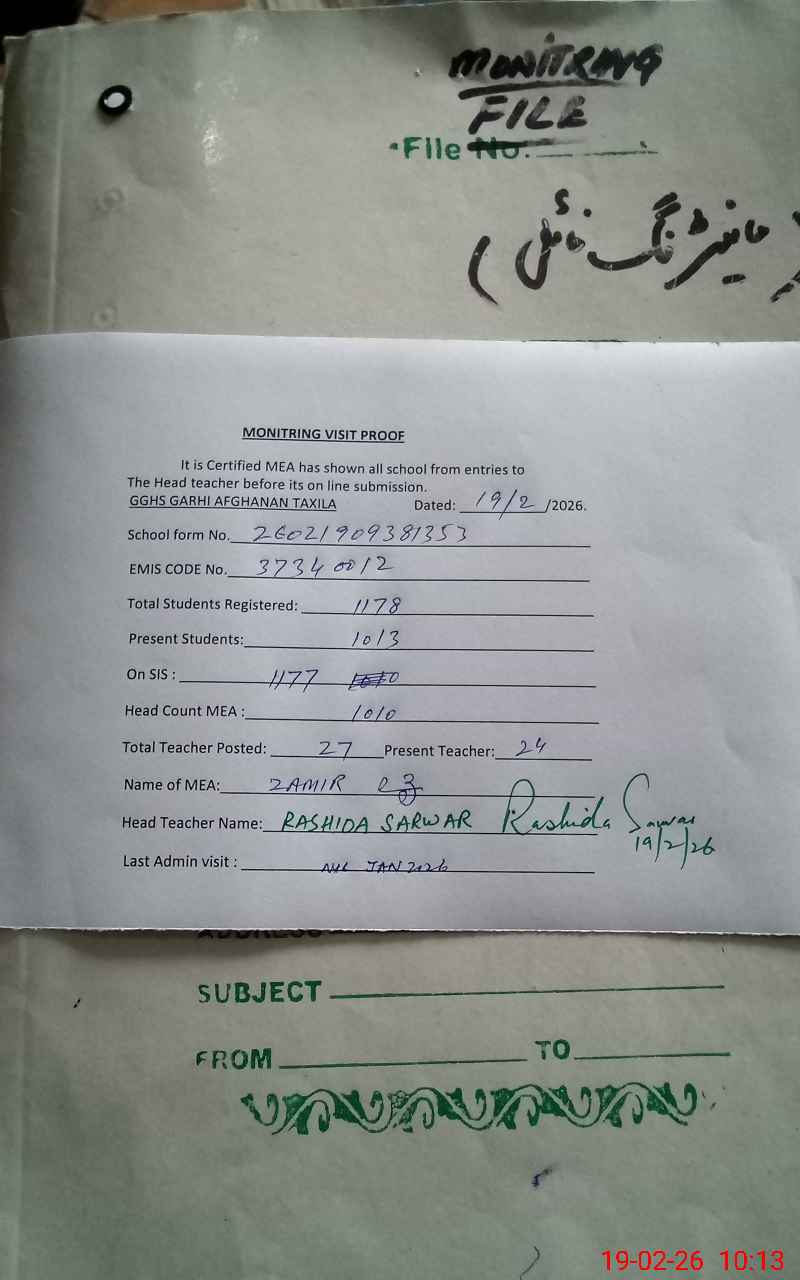 MONITRING
FILE
File No.
(مانیٹرنگ فائل)
MONITRING VISIT PROOF
It is Certified MEA has shown all school from entries to
The Head teacher before its on line submission.
GGHS GARHI AFGHANAN TAXILA Dated: 19/2/2026.
School form No. 26021909381353
EMIS CODE No. 37340012
Total Students Registered: 1178
Present Students: 1013
On SIS : 1177
Head Count MEA : 1010
Total Teacher Posted: 27 Present Teacher: 24
Name of MEA: ZAMIR
Head Teacher Name: RASHIDA SARWAR Rashida Sarwar
19/2/26
Last Admin visit : NIL JAN 2026
ADDRESS
SUBJECT
FROM TO
19-02-26 10:13